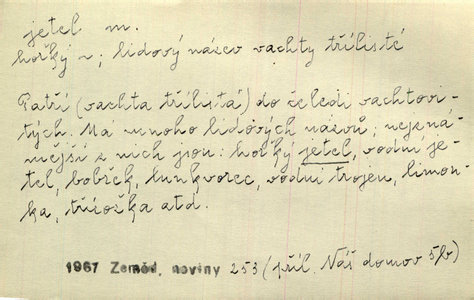 jetel m.
hořký ~; lidový název vachty třílisté
Patří (vachta třílistá) do čeledi vachtovi-
tých. Má mnoho lidových názvů; nejzná-
mější z nich jsou: hořký jetel, vodní je-
tel, bobřek, lunkvorec, vodní trojen, limon-
ka, třížožka atd.
1967 Zeměd. noviny 253 (příl. Náš domov 5/b)